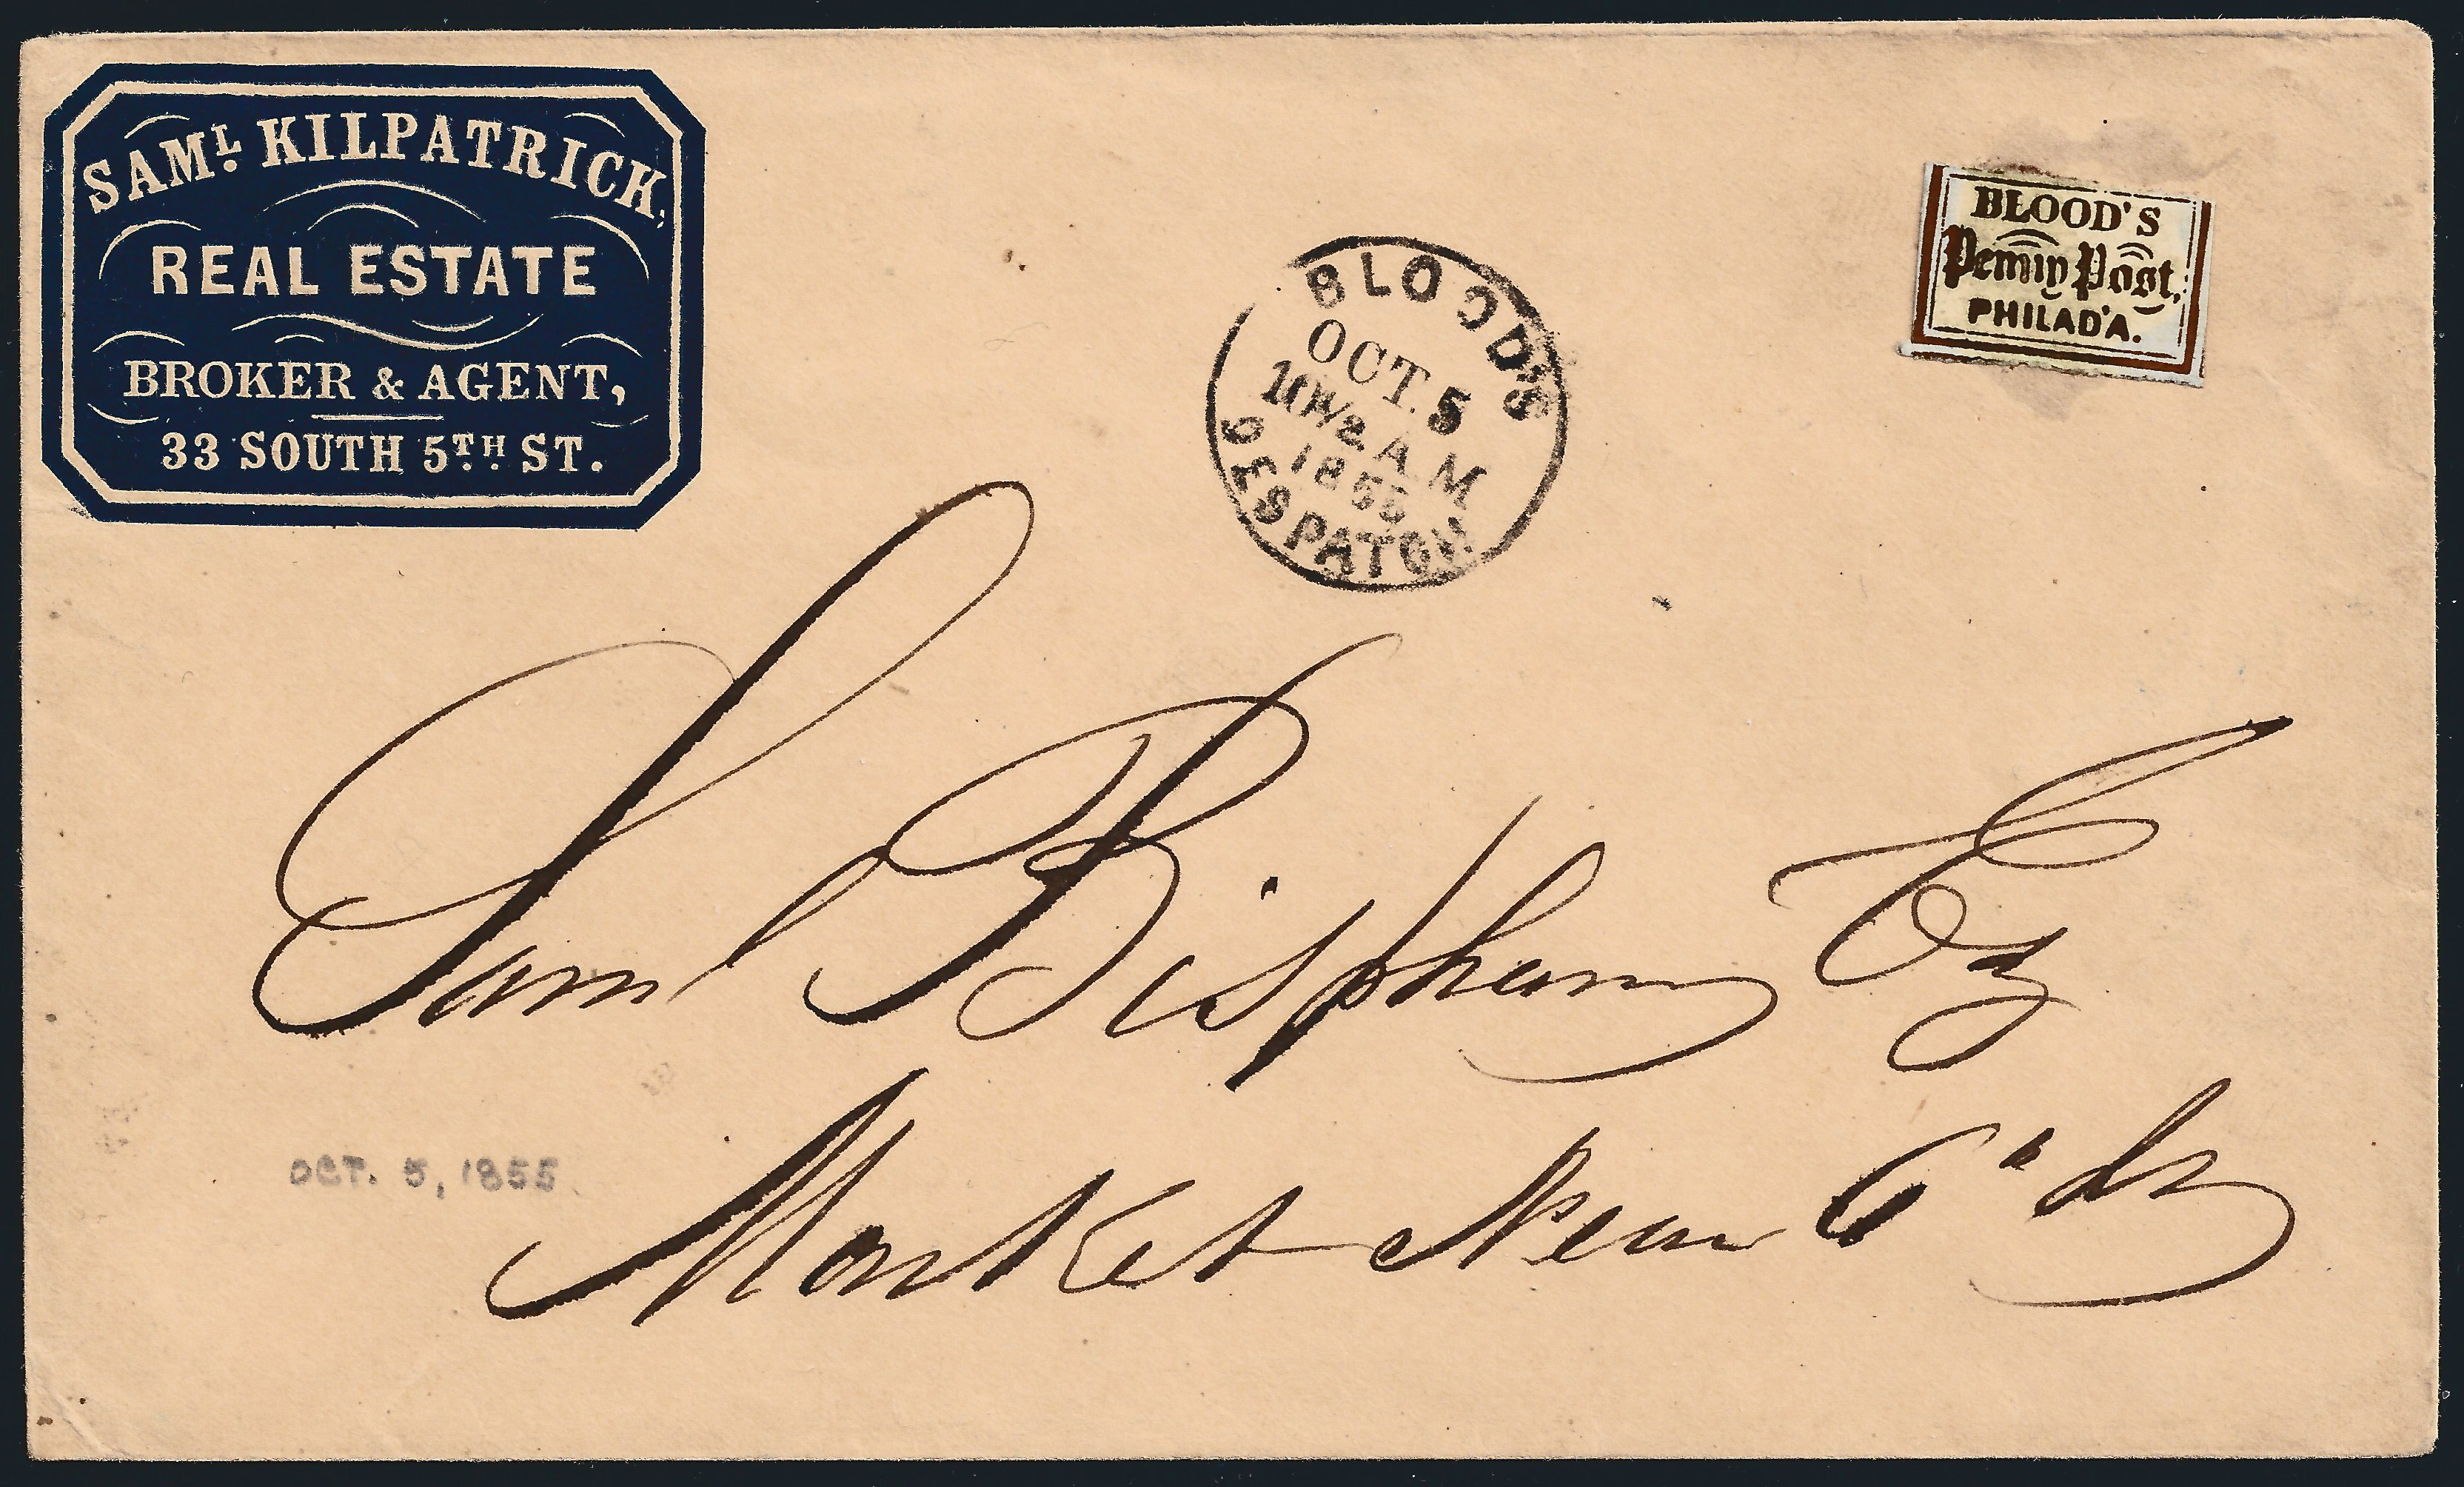 SAML. KILPATRICK,
REAL ESTATE
BROKER & AGENT,
33 SOUTH 5TH ST.
BLOOD'S
OCT. 5
10 1/2 A.M
1855
DESPATCH
BLOOD'S
Penny Post,
PHILAD'A.
Saml Bispham Esq
Market Near 6th St
OCT. 5, 1855